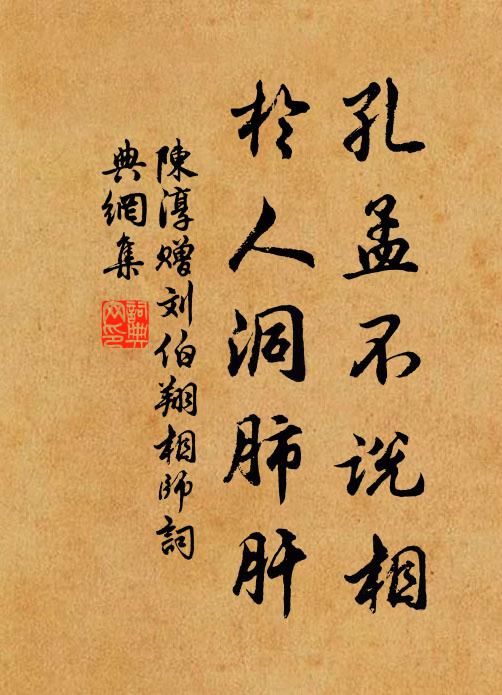 孔孟不说相
於人洞肺肝
陳淳赠刘伯翔相师詞
典網集
詞典网印